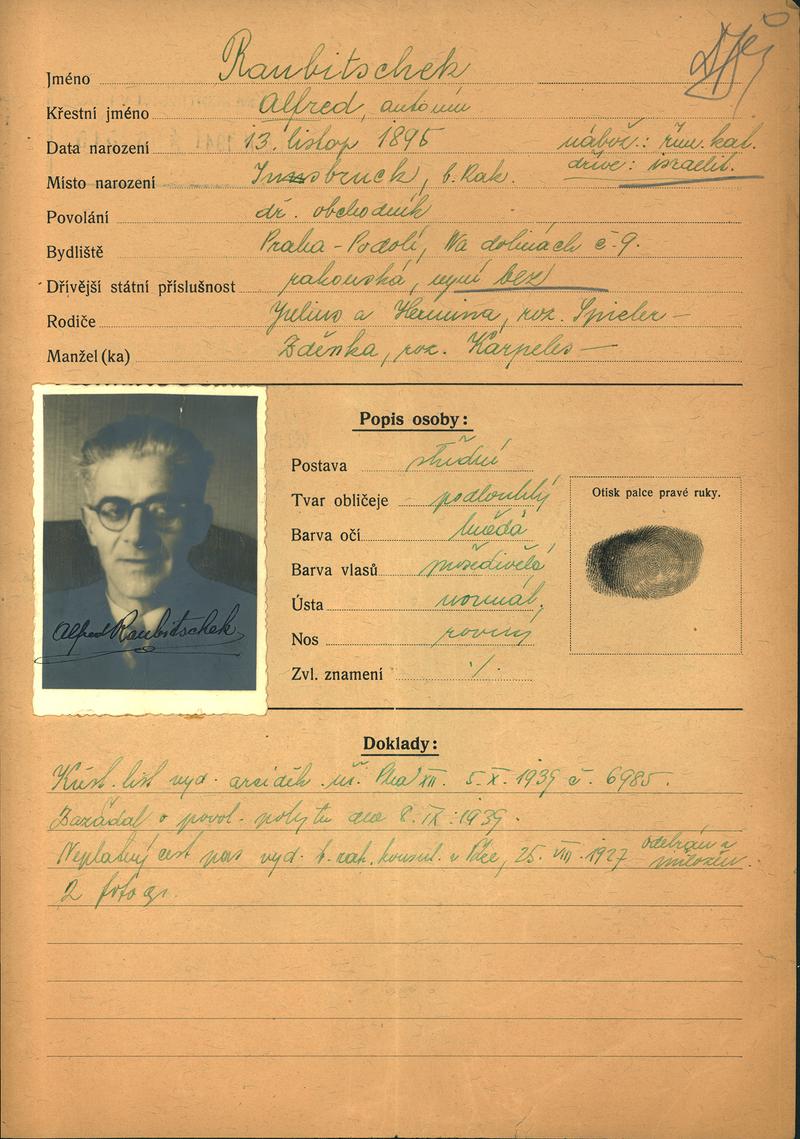 Jméno Raubitschek
Křestní jméno Alfred, antonín
Data narození 13. listop 1895 nábož.: řím. kat.
Místo narození Innsbruck, b. Rak. dříve: israelit.
Povolání obchodník
Bydliště Praha - Podolí, Na dolinách č. 9.
Dřívější státní příslušnost rakouská, nyní bez
Rodiče Julius a Hermina, roz. Spieler —
Manžel (ka) Zděnka, roz. Karpeles —
Popis osoby:
Postava střední
Tvar obličeje podlouhlý
Barva očí hnědá
Barva vlasů prošedivělá
Ústa normál.
Nos rovný
Zvl. znamení ·/.
Otisk palce pravé ruky.
Alfred Raubitschek
Doklady:
Křest. list vyd. arciděk. úř. Pha XII. 5. X. 1939 č. 6985.
Zažádal o povol. pobytu dne 8. IX. 1939.
Neplatný cest pas vyd. b. rak. konsul. v Pze, 25. VIII. 1927 odebrán a
2 fotogr.